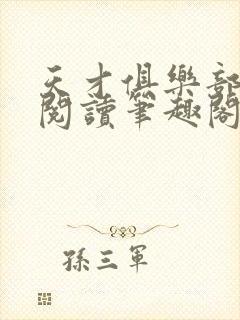 天才俱樂部
閱讀筆趣閣
孫三軍